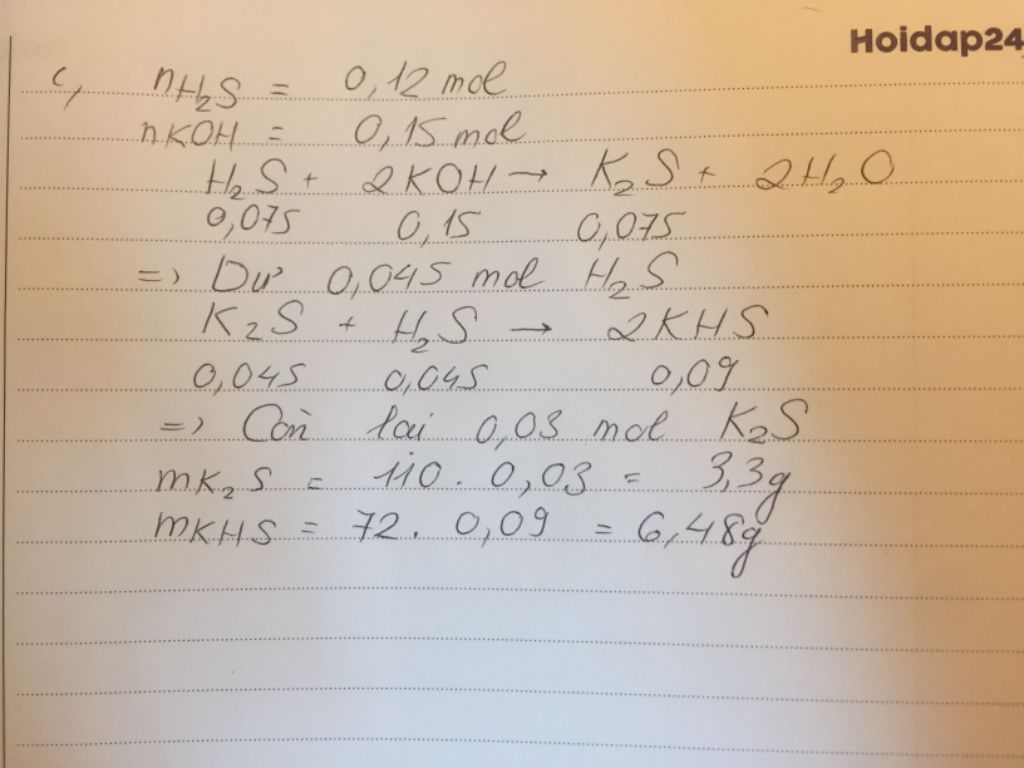 Hoidap24
c, nH₂S = 0,12 mol
nKOH = 0,15 mol
H₂S + 2KOH → K₂S + 2H₂O
0,075 0,15 0,075
=> Dư 0,045 mol H₂S
K₂S + H₂S → 2KHS
0,045 0,045 0,09
=> Còn lại 0,03 mol K₂S
mK₂S = 110 . 0,03 = 3,3g
mKHS = 72 . 0,09 = 6,48g